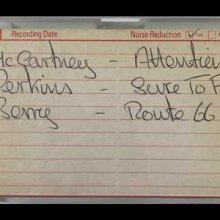 Recording Date Noise Reduction
McCartney - Attention
Perkins - Sure To F
Berry - Route 66